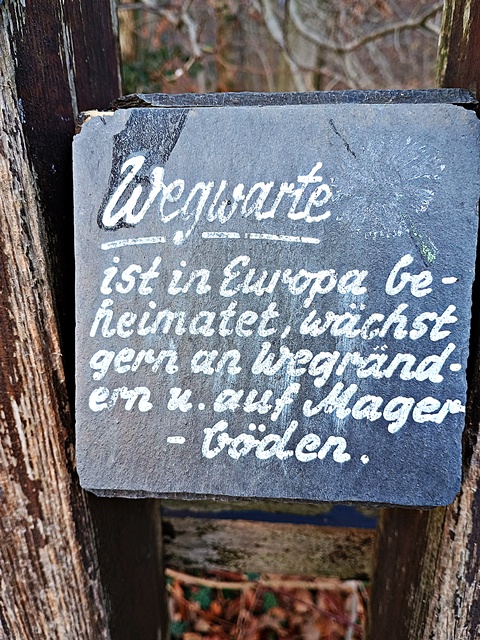 Wegwarte
ist in Europa be-
heimatet, wächst
gern an Wegränd-
ern u. auf Mager
- böden.